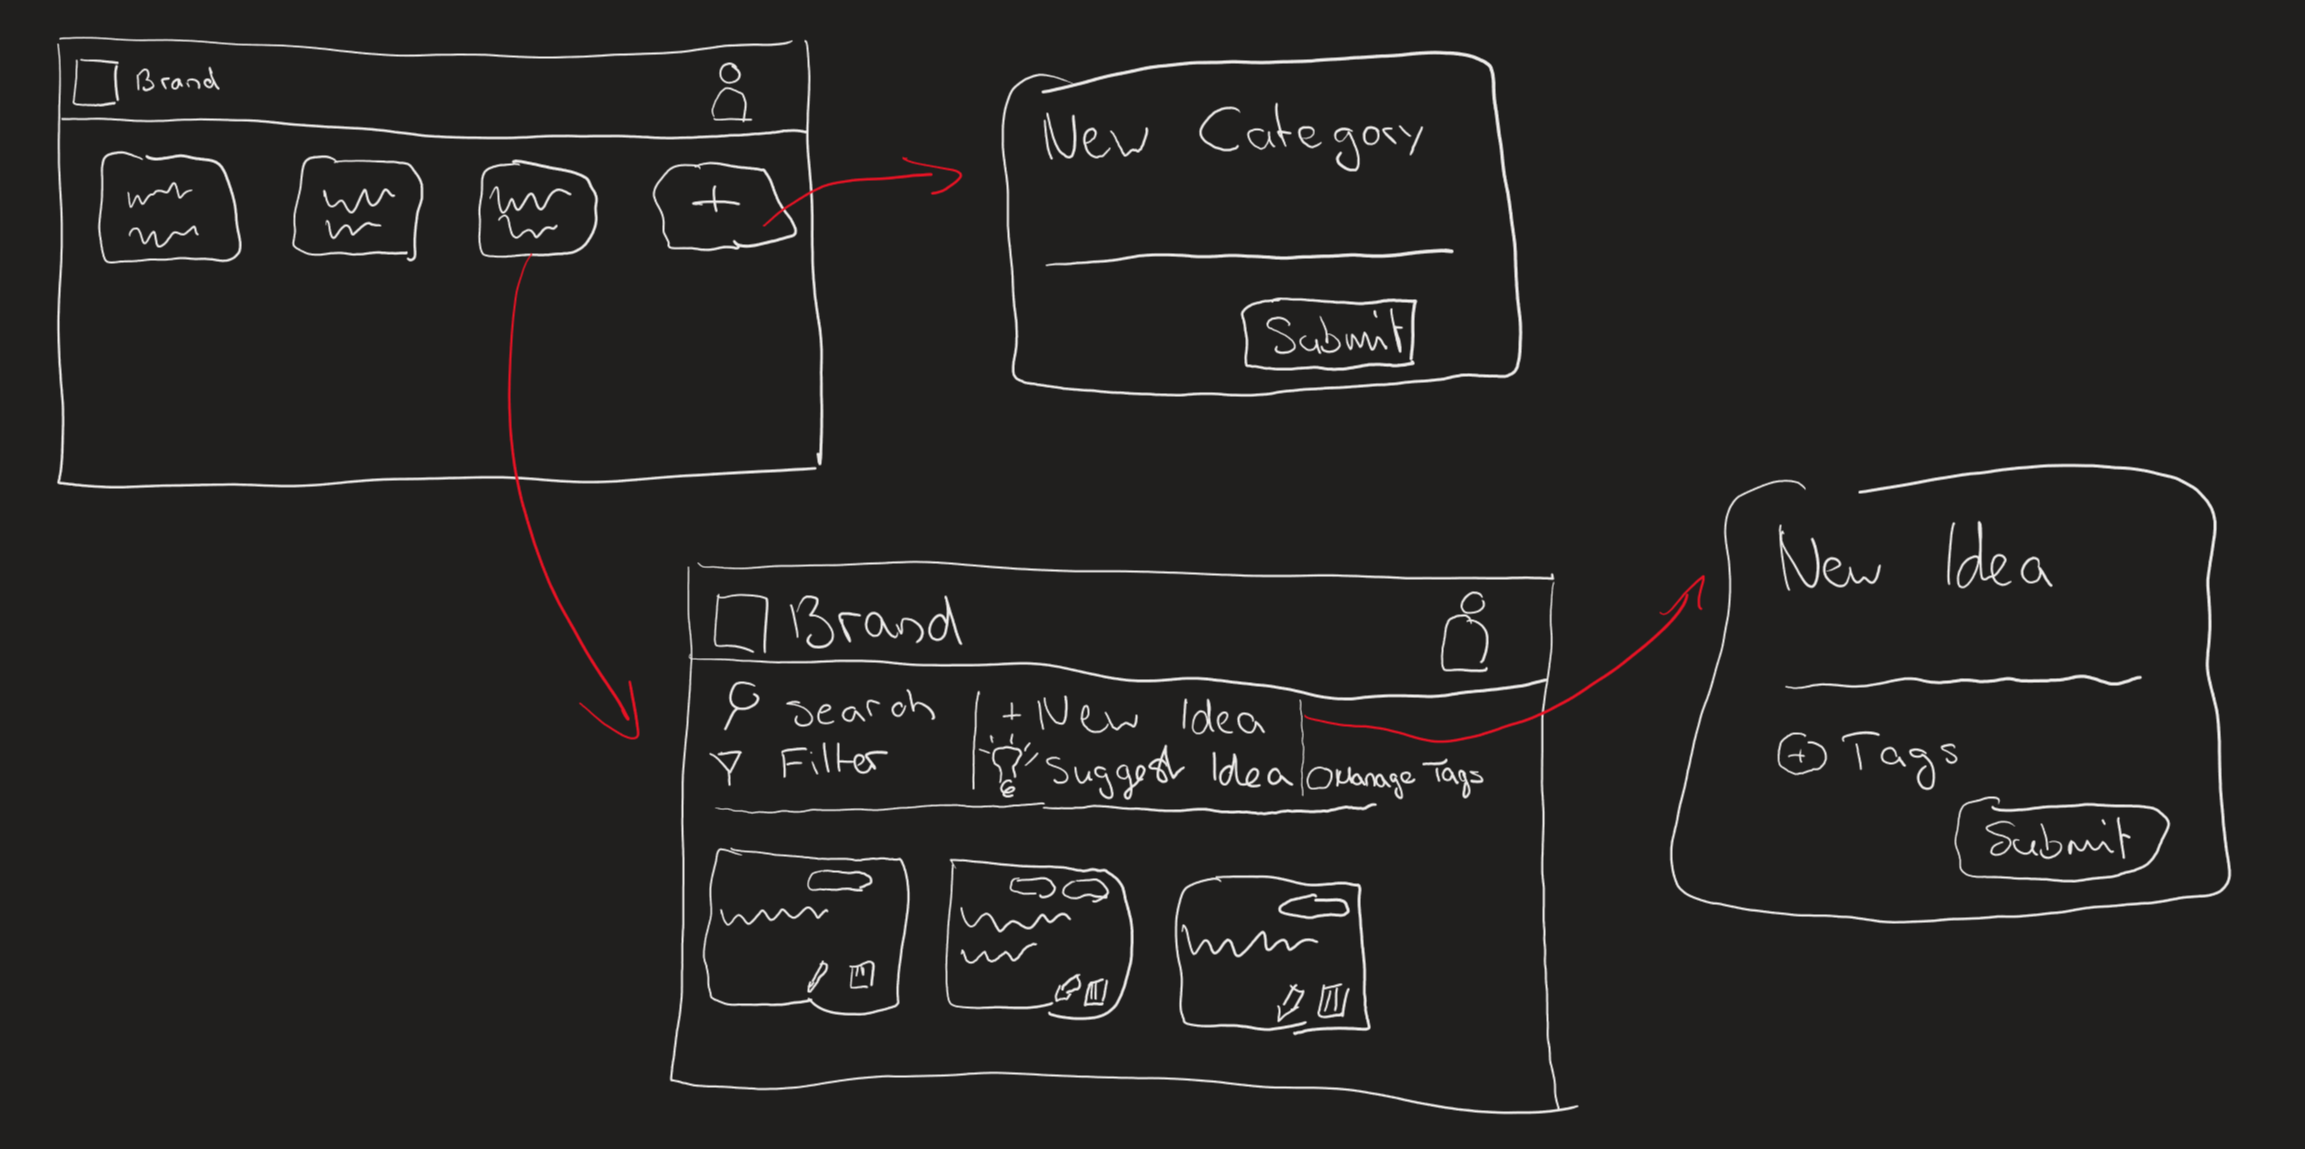 Brand
+
New Category
Submit
Brand
Search
Filter
+ New Idea
Suggest Idea
Manage Tags
New Idea
+ Tags
Submit